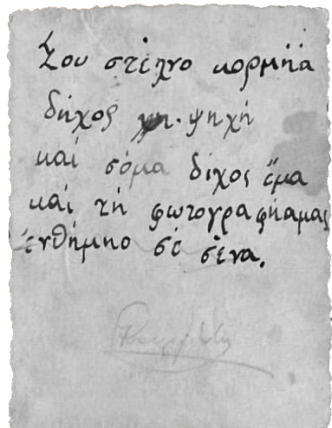 Σου στέλνο κορμήά
δήχος ψηχή
καί σόμα δίχος έμα
καί τή φωτογραφήαμας
ένθήμηο σέ σένα.